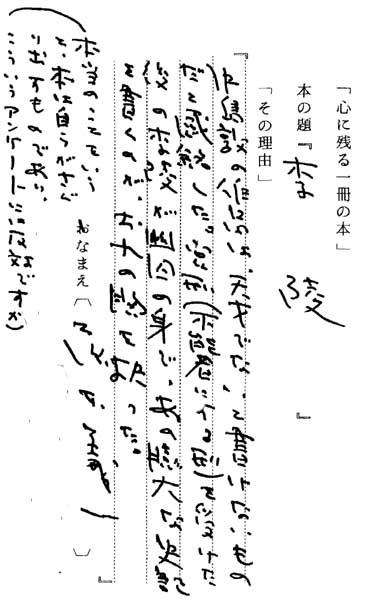 「心に残る一冊の本」
本の題『李陵』
「その理由」
『中島敦の作品は、天才でないと書けないもの
だと感銘した。宮刑(不能者にする刑)を受けた
の李陵が幽囚の身で、あの膨大な史書
を書くのが、を打った。』
おなまえ〔 〕
(本当のことをいう
と、本は自らがさぐ
り出すものであり、
こういうアンケートには反対ですが)